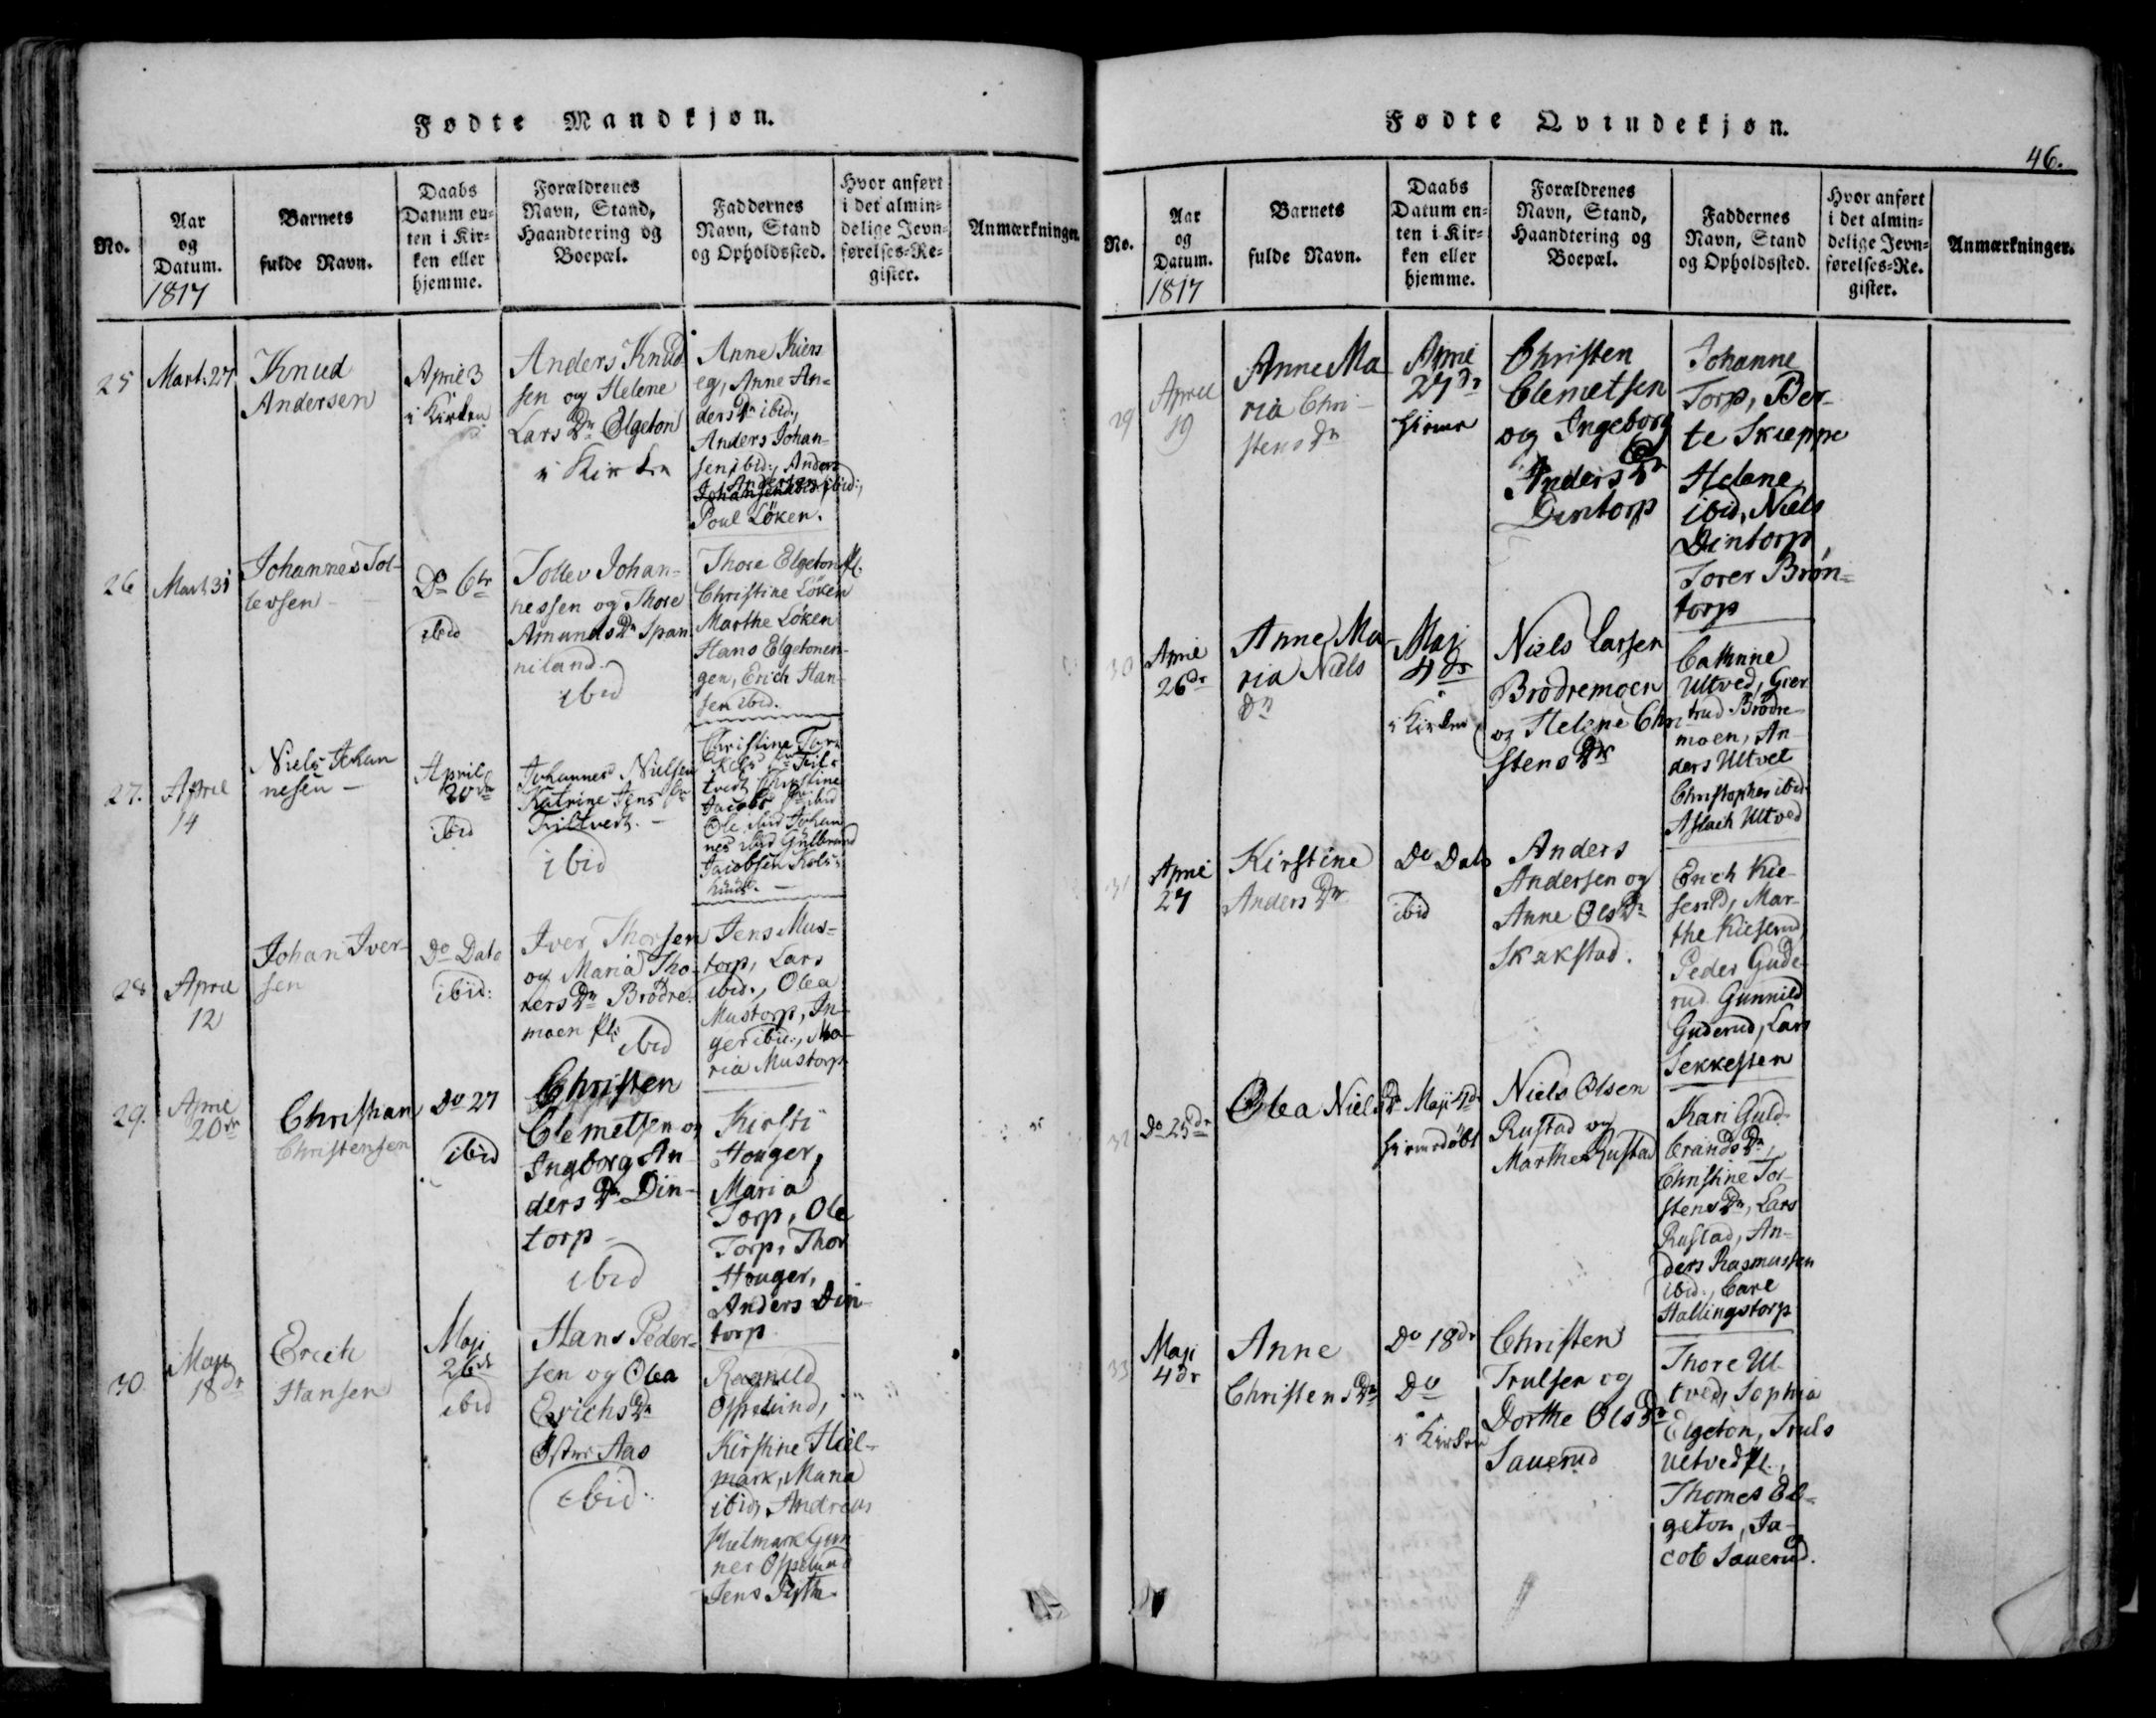 Fødte Mandkjøn.
No.
Aar
og
Datum.
1817
Barnets
fulde Navn.
Daabs
Datum en-
ten i Kir-
ken eller
hjemme.
Forældrenes
Navn, Stand,
Haandtering og
Boepæl.
Faddernes
Navn, Stand
og Opholdssted.
Hvor anført
i det almin-
delige Jevn-
førelses-Re-
gister.
Anmærkninger.
25
Mart. 27
Knud
Andersen
April 3
i Kirken
Anders Knud
sen og Helene
Lars Dr Elgeton
i Kirken
Anne Kiers
eg, Anne An-
ders Dr ibid,
Anders Johan-
sen ibid:, Anders
Andersen ibid:,
Poul Löken.
26
Mart. 31
Johannes Tol-
levsen
Do 6te
ibid
Tollev Johan-
nessen og Thore
Amunds Dr Span
niland
ibid
Thore Elgeton
Christine Löken
Marthe Löken
Hans Elgetonen-
gen, Erich Han-
sen ibid.
27.
April
14
Niels Johan
nesen
April
20de
ibid
Johannes Nielsen
Katrine Jens Dr
ibid
Christine Tor
Jacobs Dr ibid
Ole ibid Johan
nes ibid Gulbrand
Jacobsen
28
April
12
Johan Iver-
sen
Do Dato
ibid:
Iver Thorsen
og Maria Tho-
kers Dr Brödre-
moen Pl:
ibid
Jens Mus-
torp, Lars
ibid., Olea
Mustorp, In-
ger ibid., Ma-
ria Mustorp
29.
April
20de
Christian
Christensen
Do 27
ibid
Christen
Clemetsen og
Ingborg An
ders Dr Din-
torp
ibid
Kirsti
Houger,
Maria
Torp, Ole
Torp, Thor
Houger,
Anders Din-
torp
30
Maji
18de
Erich
Hansen
Maji
26de
ibid
Hans Peder-
sen og Olea
Erichs Dr
Öster Aas
ibid
Ragnild
Oppelund,
Kirstine Hiel-
mark, Maria
ibid, Andreas
Hielmark Gun
ner Oppelund
Jens
Fødte Qvindekjøn.
46.
No.
Aar
og
Datum.
1817
Barnets
fulde Navn.
Daabs
Datum en-
ten i Kir-
ken eller
hjemme.
Forældrenes
Navn, Stand,
Haandtering og
Boepæl.
Faddernes
Navn, Stand
og Opholdssted.
Hvor anført
i det almin-
delige Jevn-
førelses-Re-
gister.
Anmærkninger.
29
April
19
Anne Ma
ria Chri-
stens Dr
April
27de
hiemme
Christen
Clemetsen
og Ingeborg
Anders Dr
Dintorp
Johanne
Torp, Ber-
te Skieppe
Helene
ibid, Niels
Dintorp,
Torer Brön-
torp
30
April
26de
Anne Ma
ria Niels
Dr
Maj
4de
i Kirken
Niels Larsen
Brödremoen
og Helene Chri
stens Dr
Cathrine
Ultved, Gier
trud Brödre-
moen, An-
ders Ultvet
Christopher ibid
Aslach Ultved
31
April
27
Kirstine
Anders Dr
Do Dato
ibid
Anders
Andersen og
Anne Ols Dr
Skakstad.
Erich Kie-
serud, Mar-
the Kieserud
Peder Gude-
rud Gunnild
Guderud, Lars
Sekkesten
32
Do 25de
Olea Niels Dr
Maji 4de
hiemedöbt
Niels Olsen
Rustad og
Marthe Rustad
Kari Guld-
brands Dr,
Christine Tor-
stens Dr, Lars
Rustad, An-
ders Rasmussen
ibid., Carl
Hallingstorp
33
Maji
4de
Anne
Christens Dr
Do 18de
Do
i Kirken
Christen
Trulsen og
Dorthe Ols Dr
Sauerud
Thore Ul-
tved, Sophia
Elgeton, Truls
Ultved Pl.,
Thomes El-
geton, Ja-
cob Sauerud.